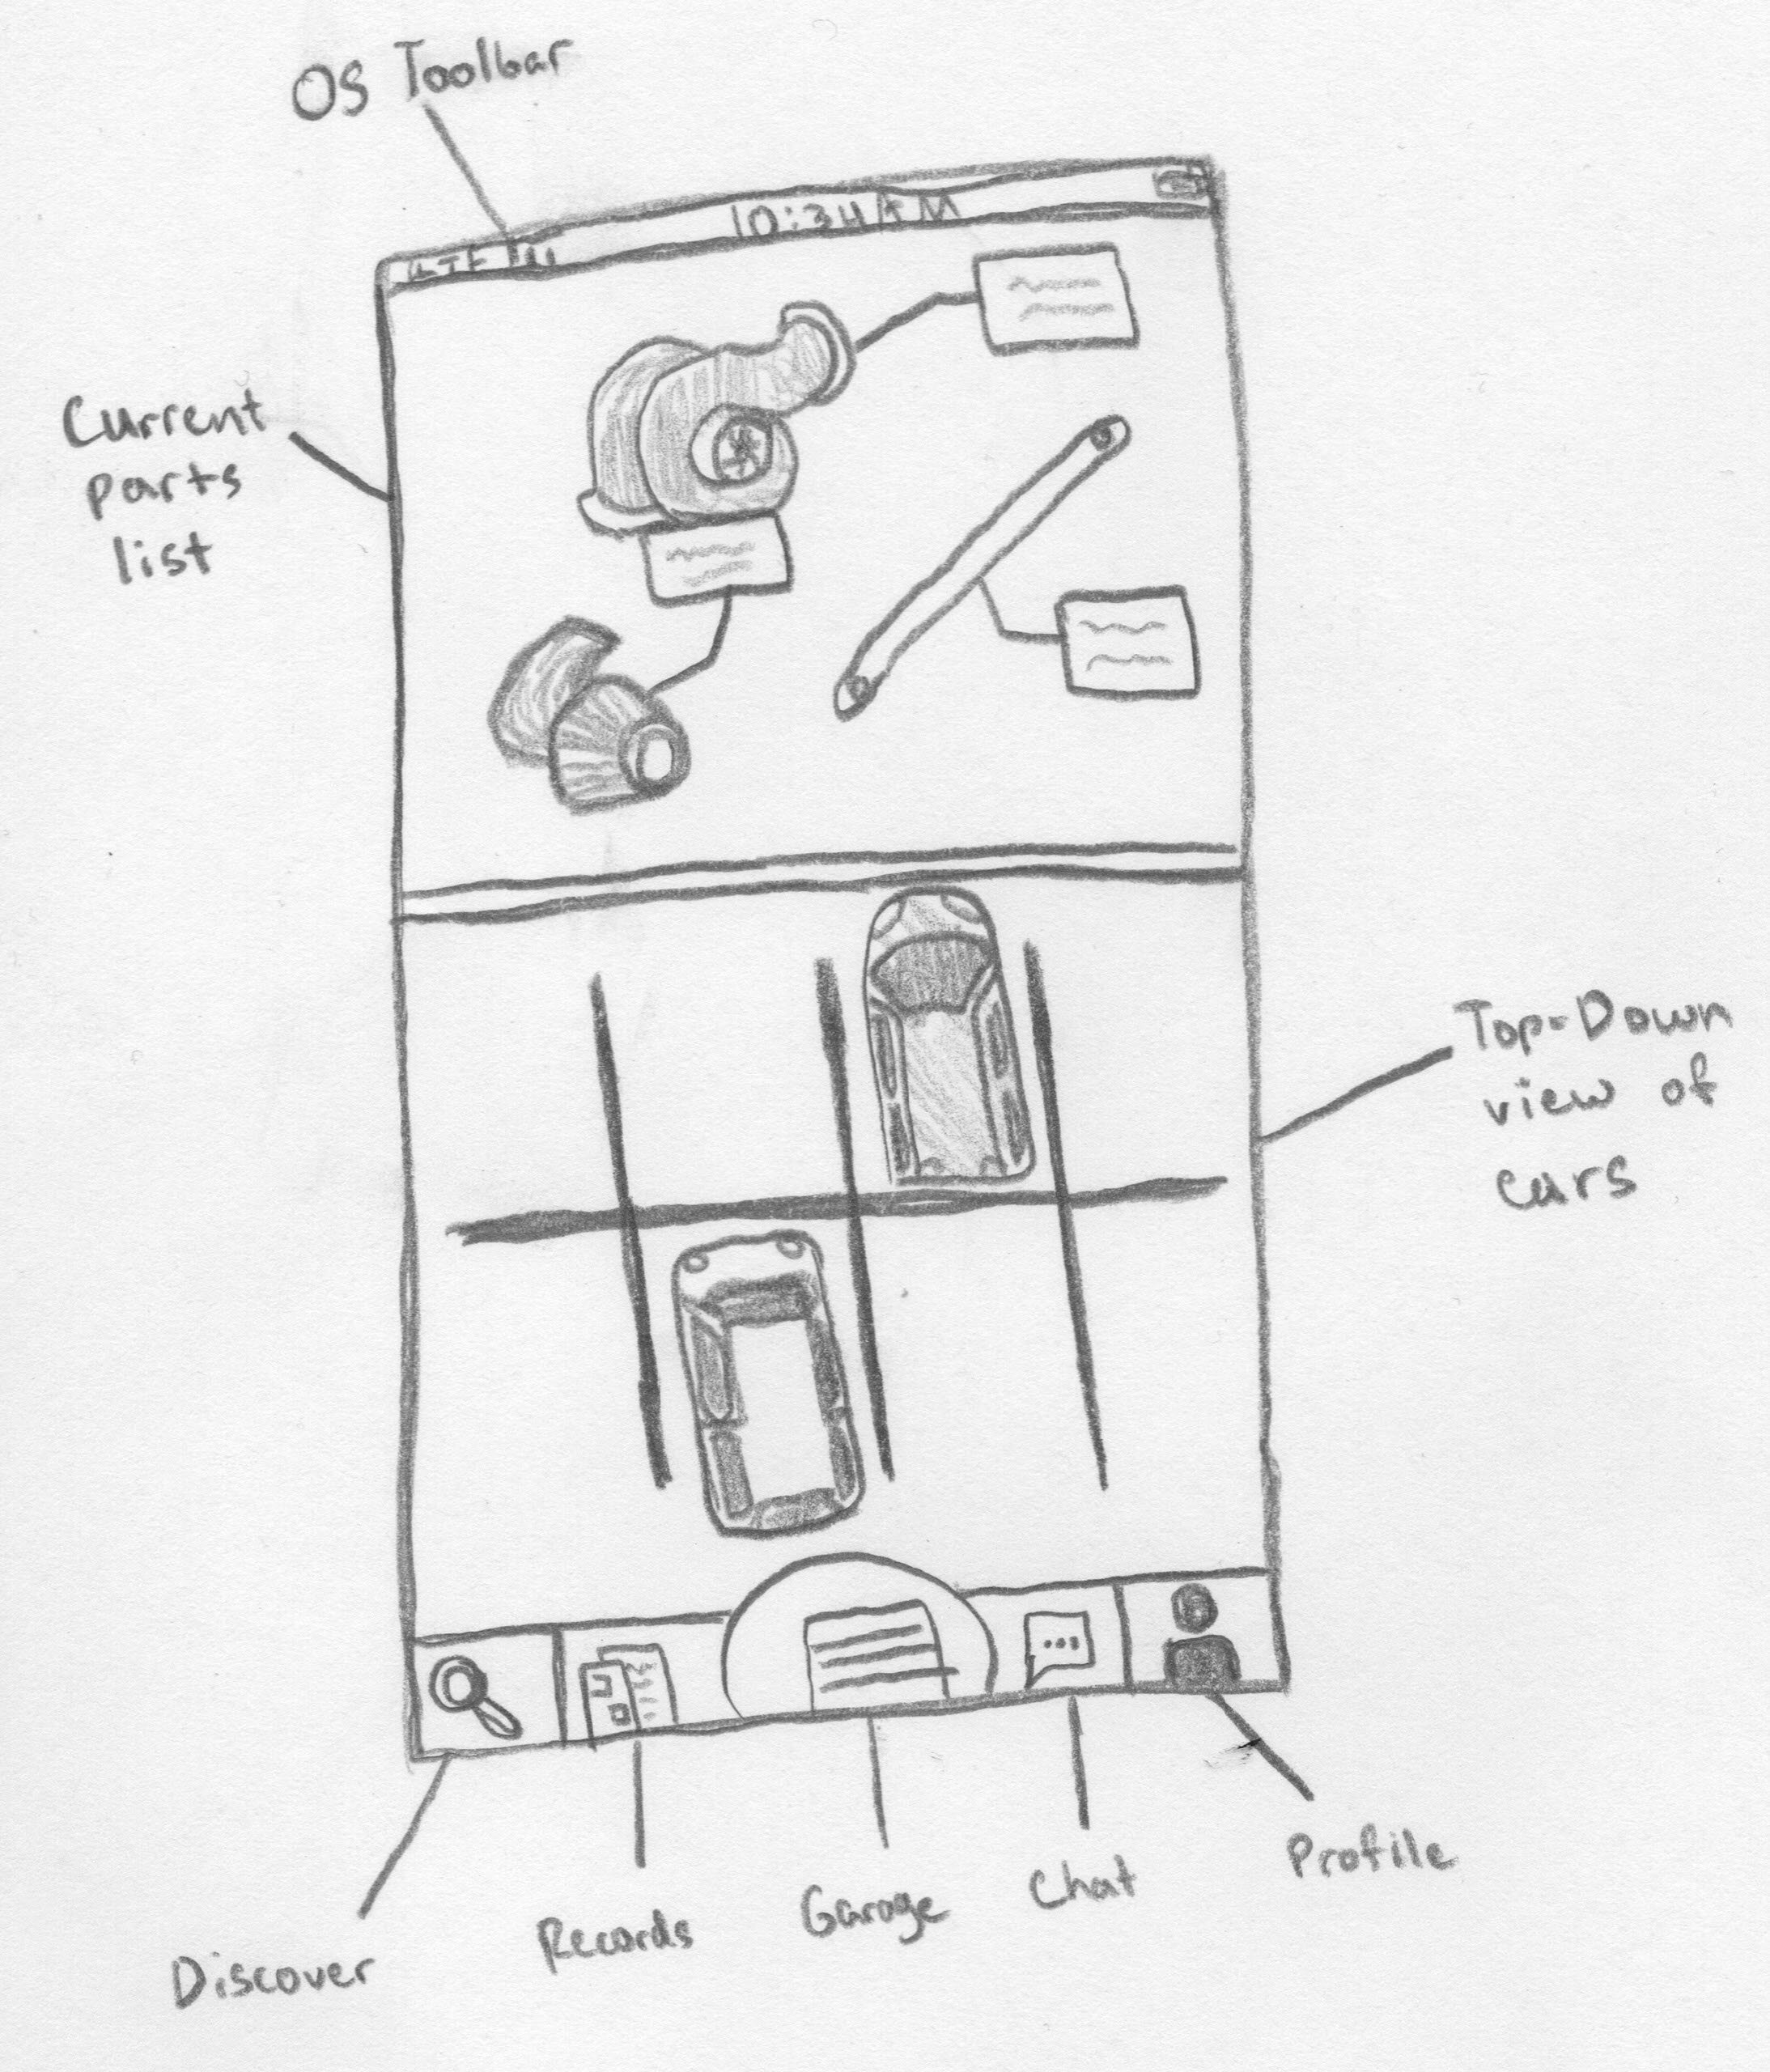 OS Toolbar
LTE
10:34AM
Current
parts
list
Top-Down
view of
cars
Discover
Records
Garage
Chat
Profile